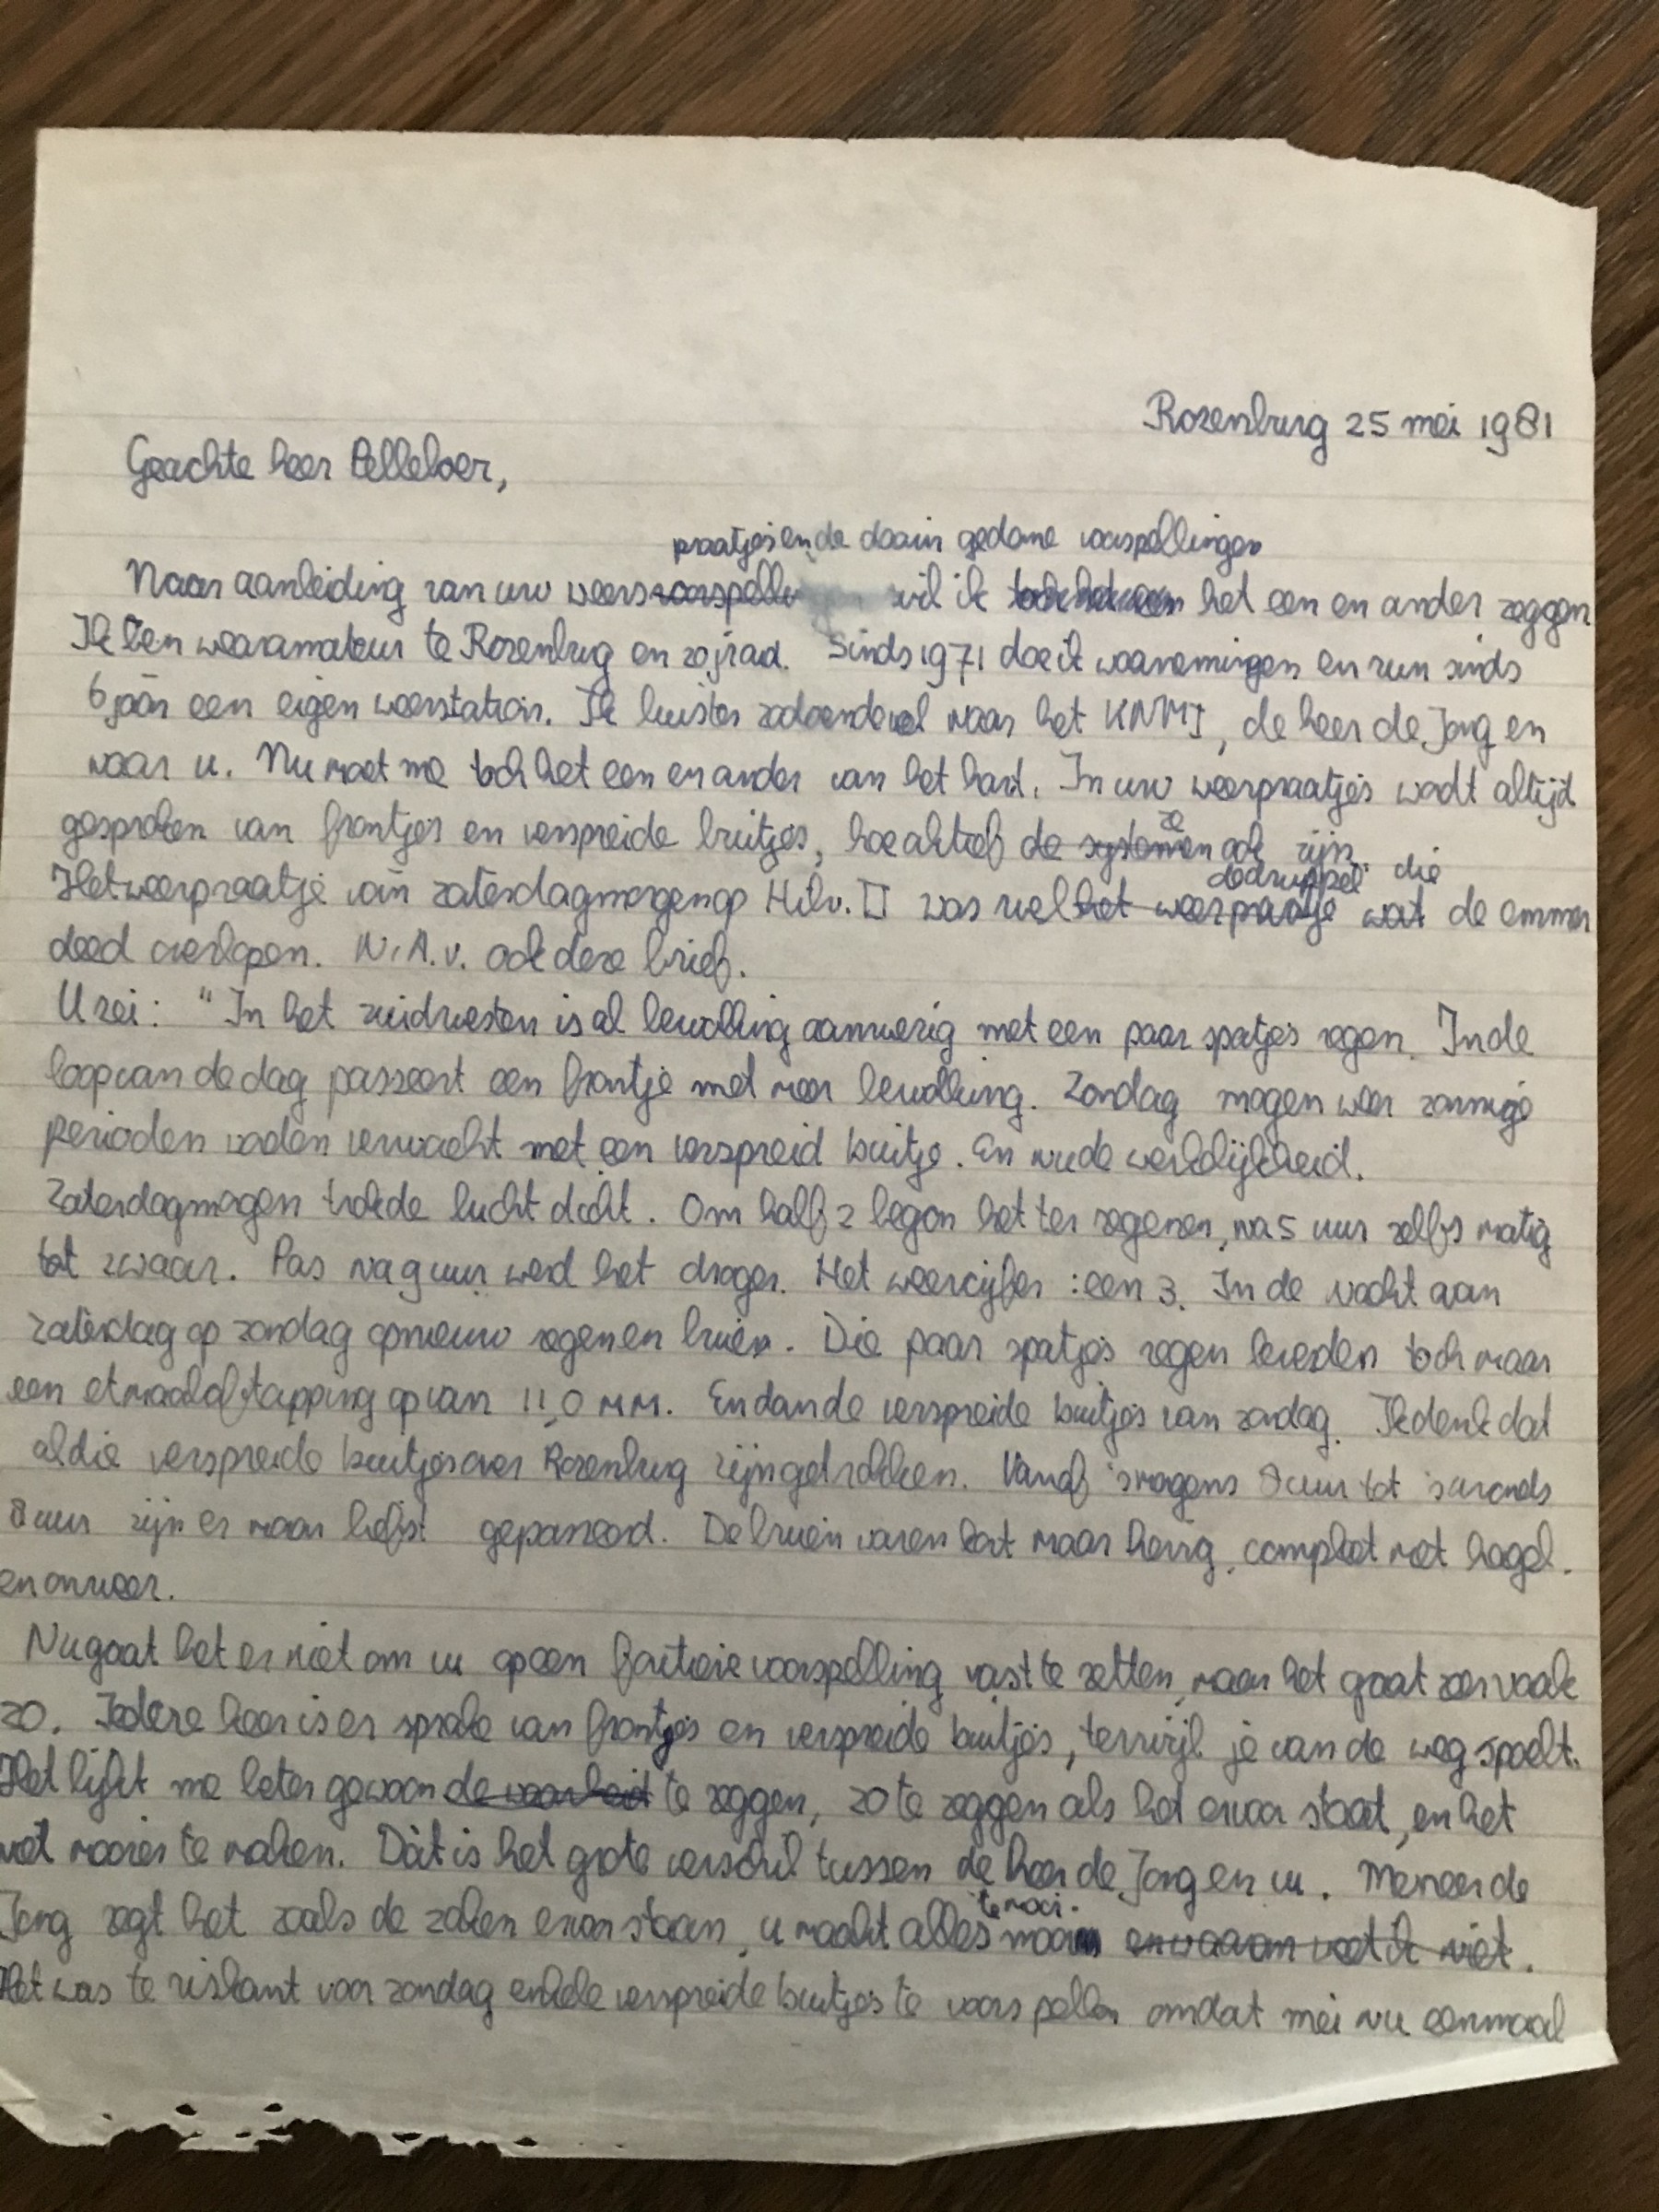 Rozenburg 25 mei 1981
Geachte heer Pelleboer,
praatjes en de daarin gedane voorspellingen
Naar aanleiding van uw weersvoorspellingen wil ik het een en ander zeggen
Ik ben weeramateur te Rozenburg en 20 jr oud. Sinds 1971 doe ik waarnemingen en run sinds
6 jaar een eigen weerstation. Ik luister zodoende wel naar het KNMI, de heer de Jong en
naar u. Nu moet me toch het een en ander van het hart. In uw weerpraatjes wordt altijd
gesproken van frontjes en verspreide buitjes, hoe aktief de systemen ze ook zijn.
de druppel die
Het weerpraatje van zaterdagmorgen op Hilv. II was wel het weerpraatje wat de emmer
deed overlopen. N.A.v. ook deze brief.
U zei: "In het zuidwesten is al bewolking aanwezig met een paar spatjes regen. In de
loop van de dag passeert een frontje met meer bewolking. Zondag mogen weer zonnige
perioden worden verwacht met een verspreid buitje. En nu de werkelijkheid.
Zaterdagmorgen trok de lucht dicht. Om half 2 begon het te regenen, na 5 uur zelfs matig
tot zwaar. Pas na 9 uur werd het droger. Het weercijfer : een 3. In de nacht van
zaterdag op zondag opnieuw regen en buien. Die paar spatjes regen leverden toch maar
een etmaalaftapping op van 11,0 mm. En dan de verspreide buitjes van zondag. Ik denk dat
al die verspreide buitjes over Rozenburg zijn getrokken. Vanaf 's morgens 8 uur tot 's avonds
8 uur zijn er maar liefst gepasseerd. De buien waren kort maar hevig, compleet met hagel.
en onweer.
Nu gaat het er niet om u op een foutieve voorspelling vast te zetten, maar het gaat zeer vaak
zo. Iedere keer is er sprake van frontjes en verspreide buitjes, terwijl je van de weg spoelt.
Het lijkt me beter gewoon de waarheid te zeggen, zo te zeggen als het ervoor staat, en het
niet mooier te maken. Dàt is het grote verschil tussen de heer de Jong en u. Meneer de
te mooi.
Jong zegt het zoals de zaken ervoor staan, u maakt alles mooier en waarom weet ik niet.
Het was te riskant voor zondag enkele verspreide buitjes te voorspellen omdat mei nu eenmaal